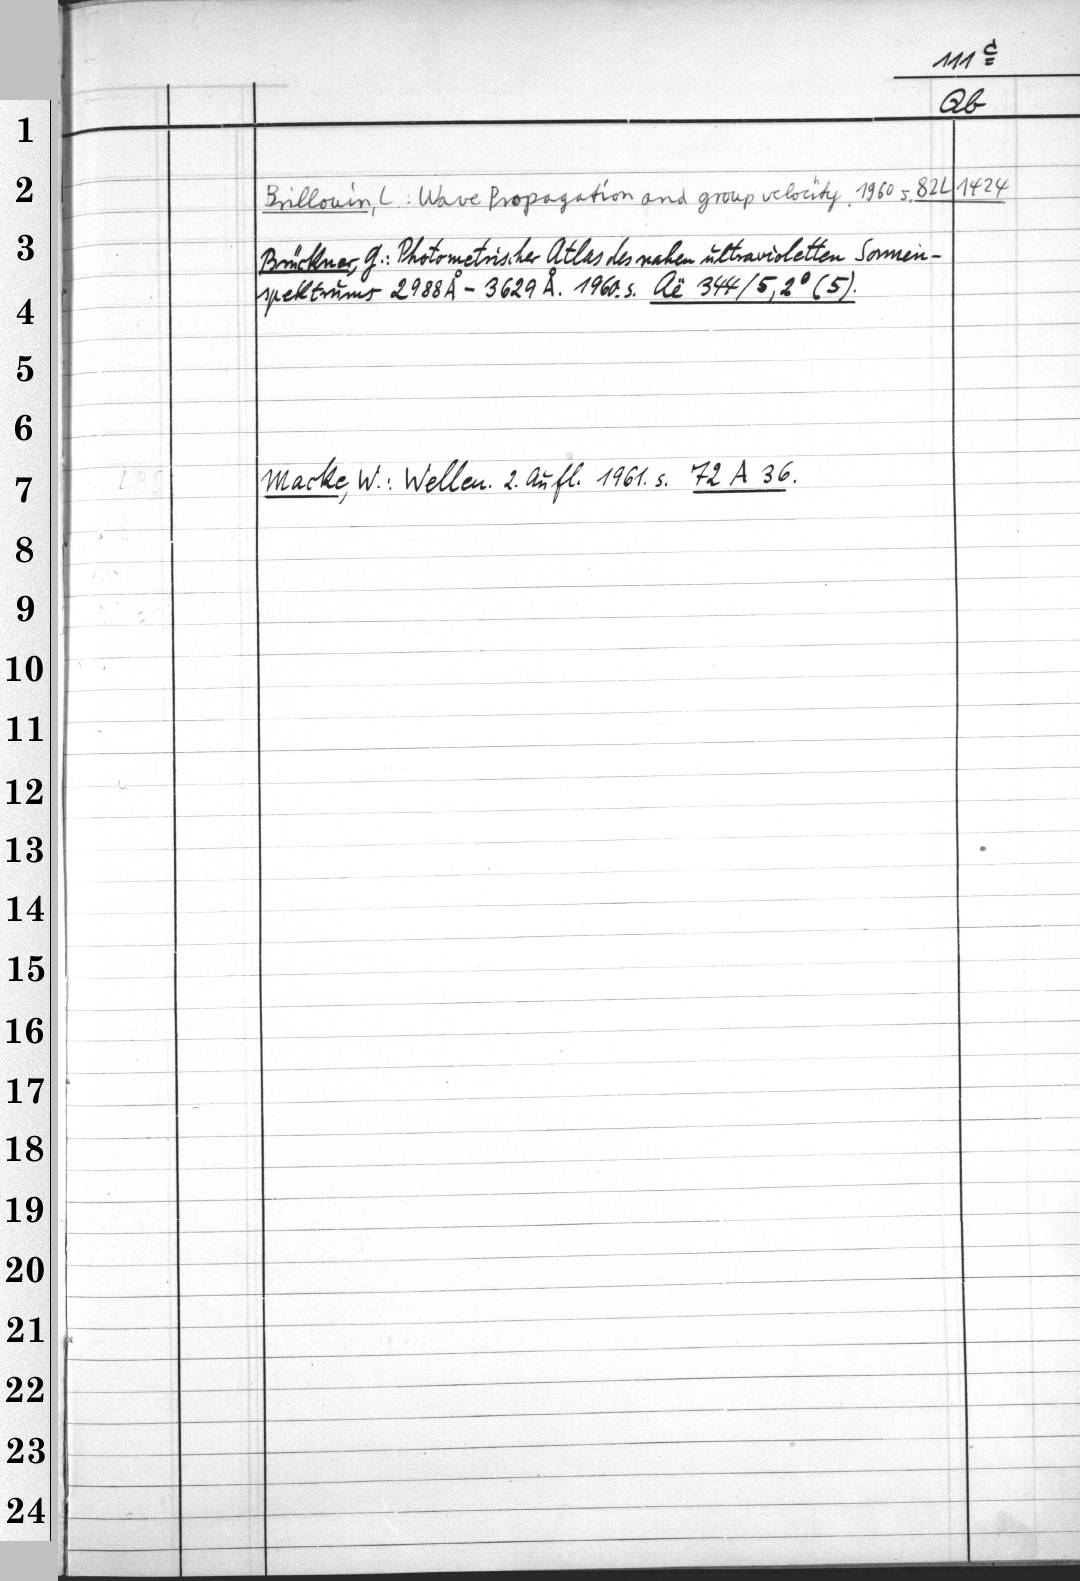 111 c
Qb
1
2 Brillouin, L.: Wave Propagation and group velocity. 1960 s. 82 L 1424
3 Brückner, G.: Photometrischer Atlas des nahen ultravioletten Sonnen-
4 spektrums 2988 Å - 3629 Å. 1960. s. Aë 344/5, 2° (5).
5
6
7 Macke, W.: Wellen. 2. Aufl. 1961. s. 72 A 36.
8
9
10
11
12
13
14
15
16
17
18
19
20
21
22
23
24